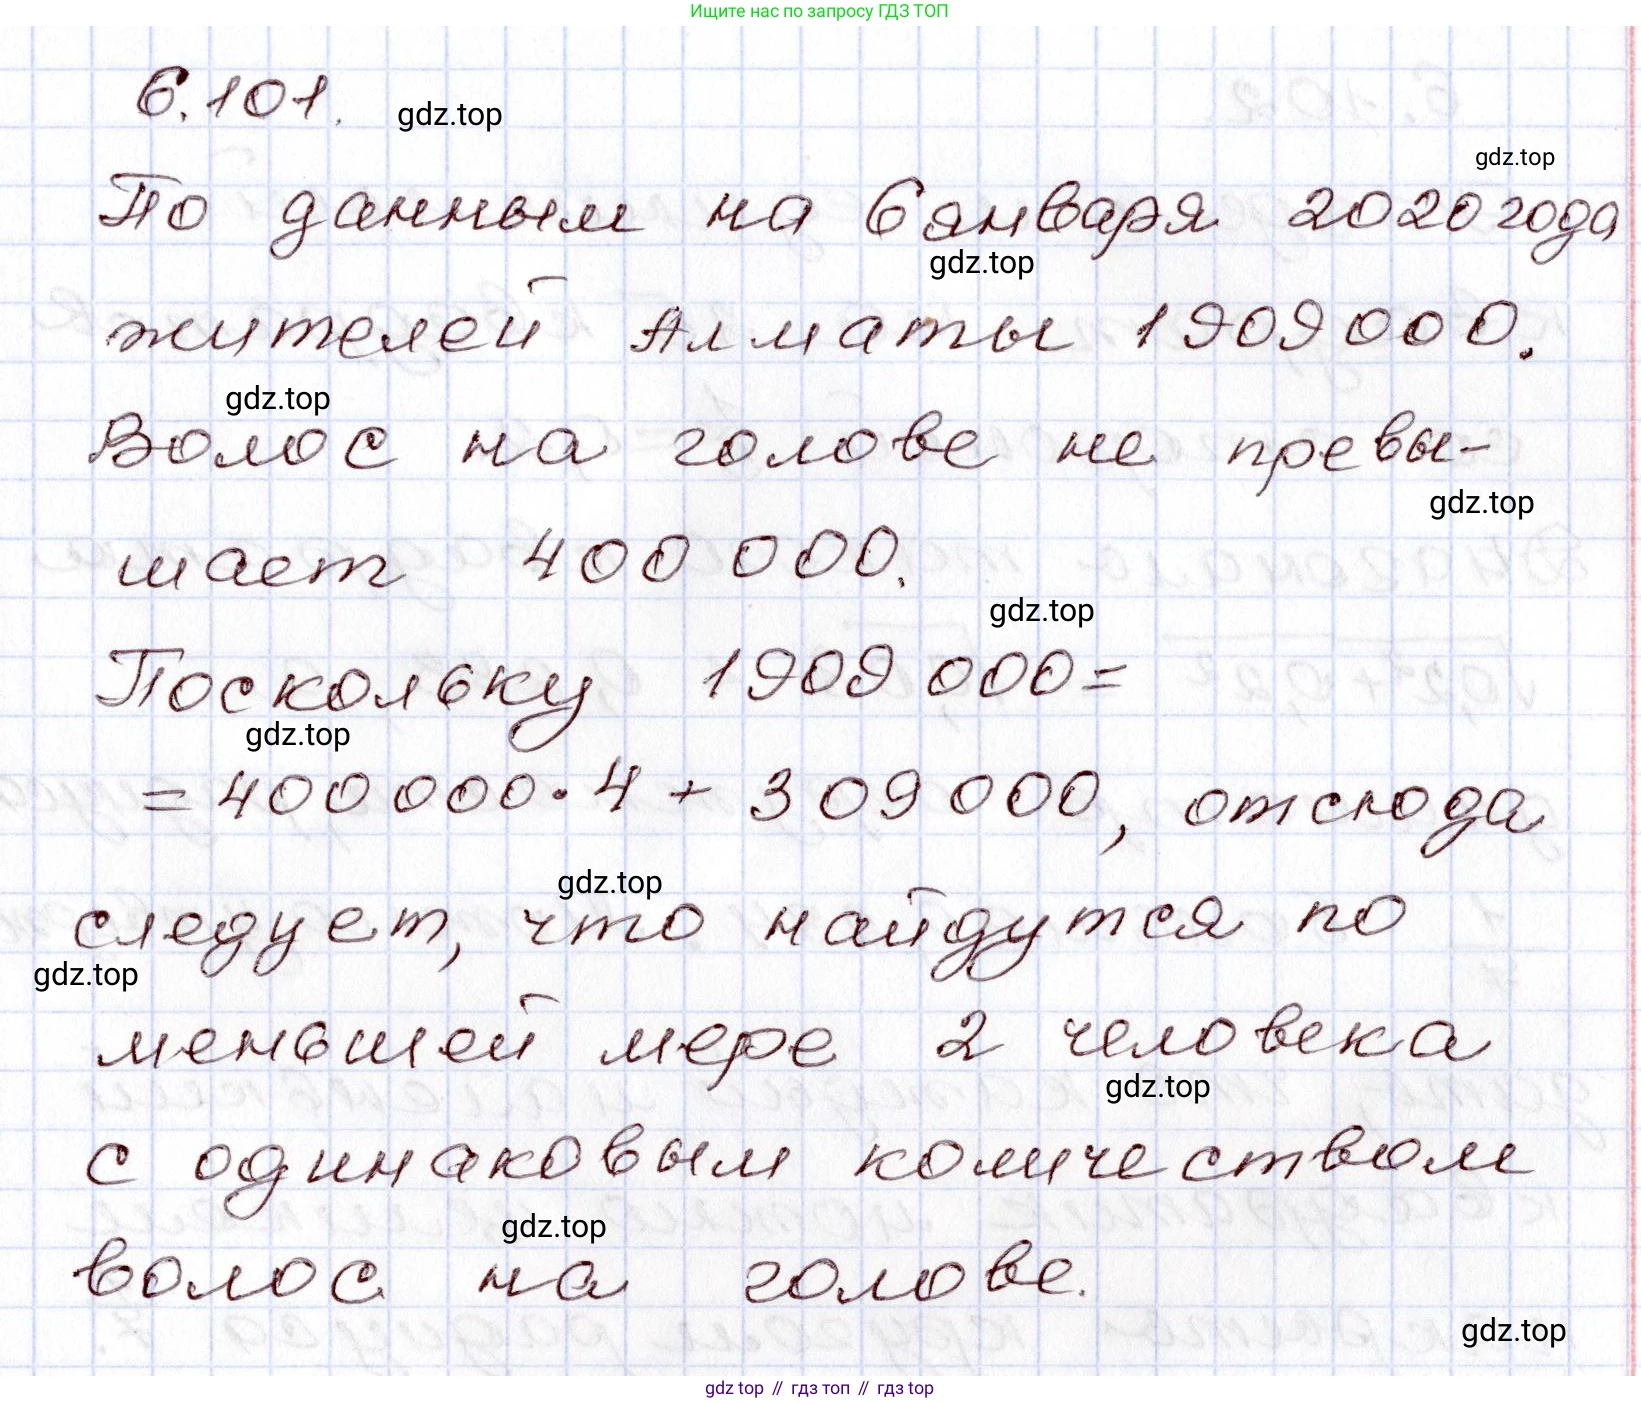 Ищите нас по запросу ГДЗ ТОП
6.101.
gdz.top
gdz.top
По данным на 6 января 2020 года
gdz.top
жителей Алматы 1909000.
gdz.top
Волос на голове не превы-
gdz.top
шает 400 000.
gdz.top
Поскольку 1909 000=
gdz.top
=400 000·4 + 309 000, отсюда
gdz.top
следует, что найдутся по
gdz.top
меньшей мере 2 человека
gdz.top
с одинаковым количеством
gdz.top
волос на голове.
gdz.top
gdz top // гдз топ // гдз top